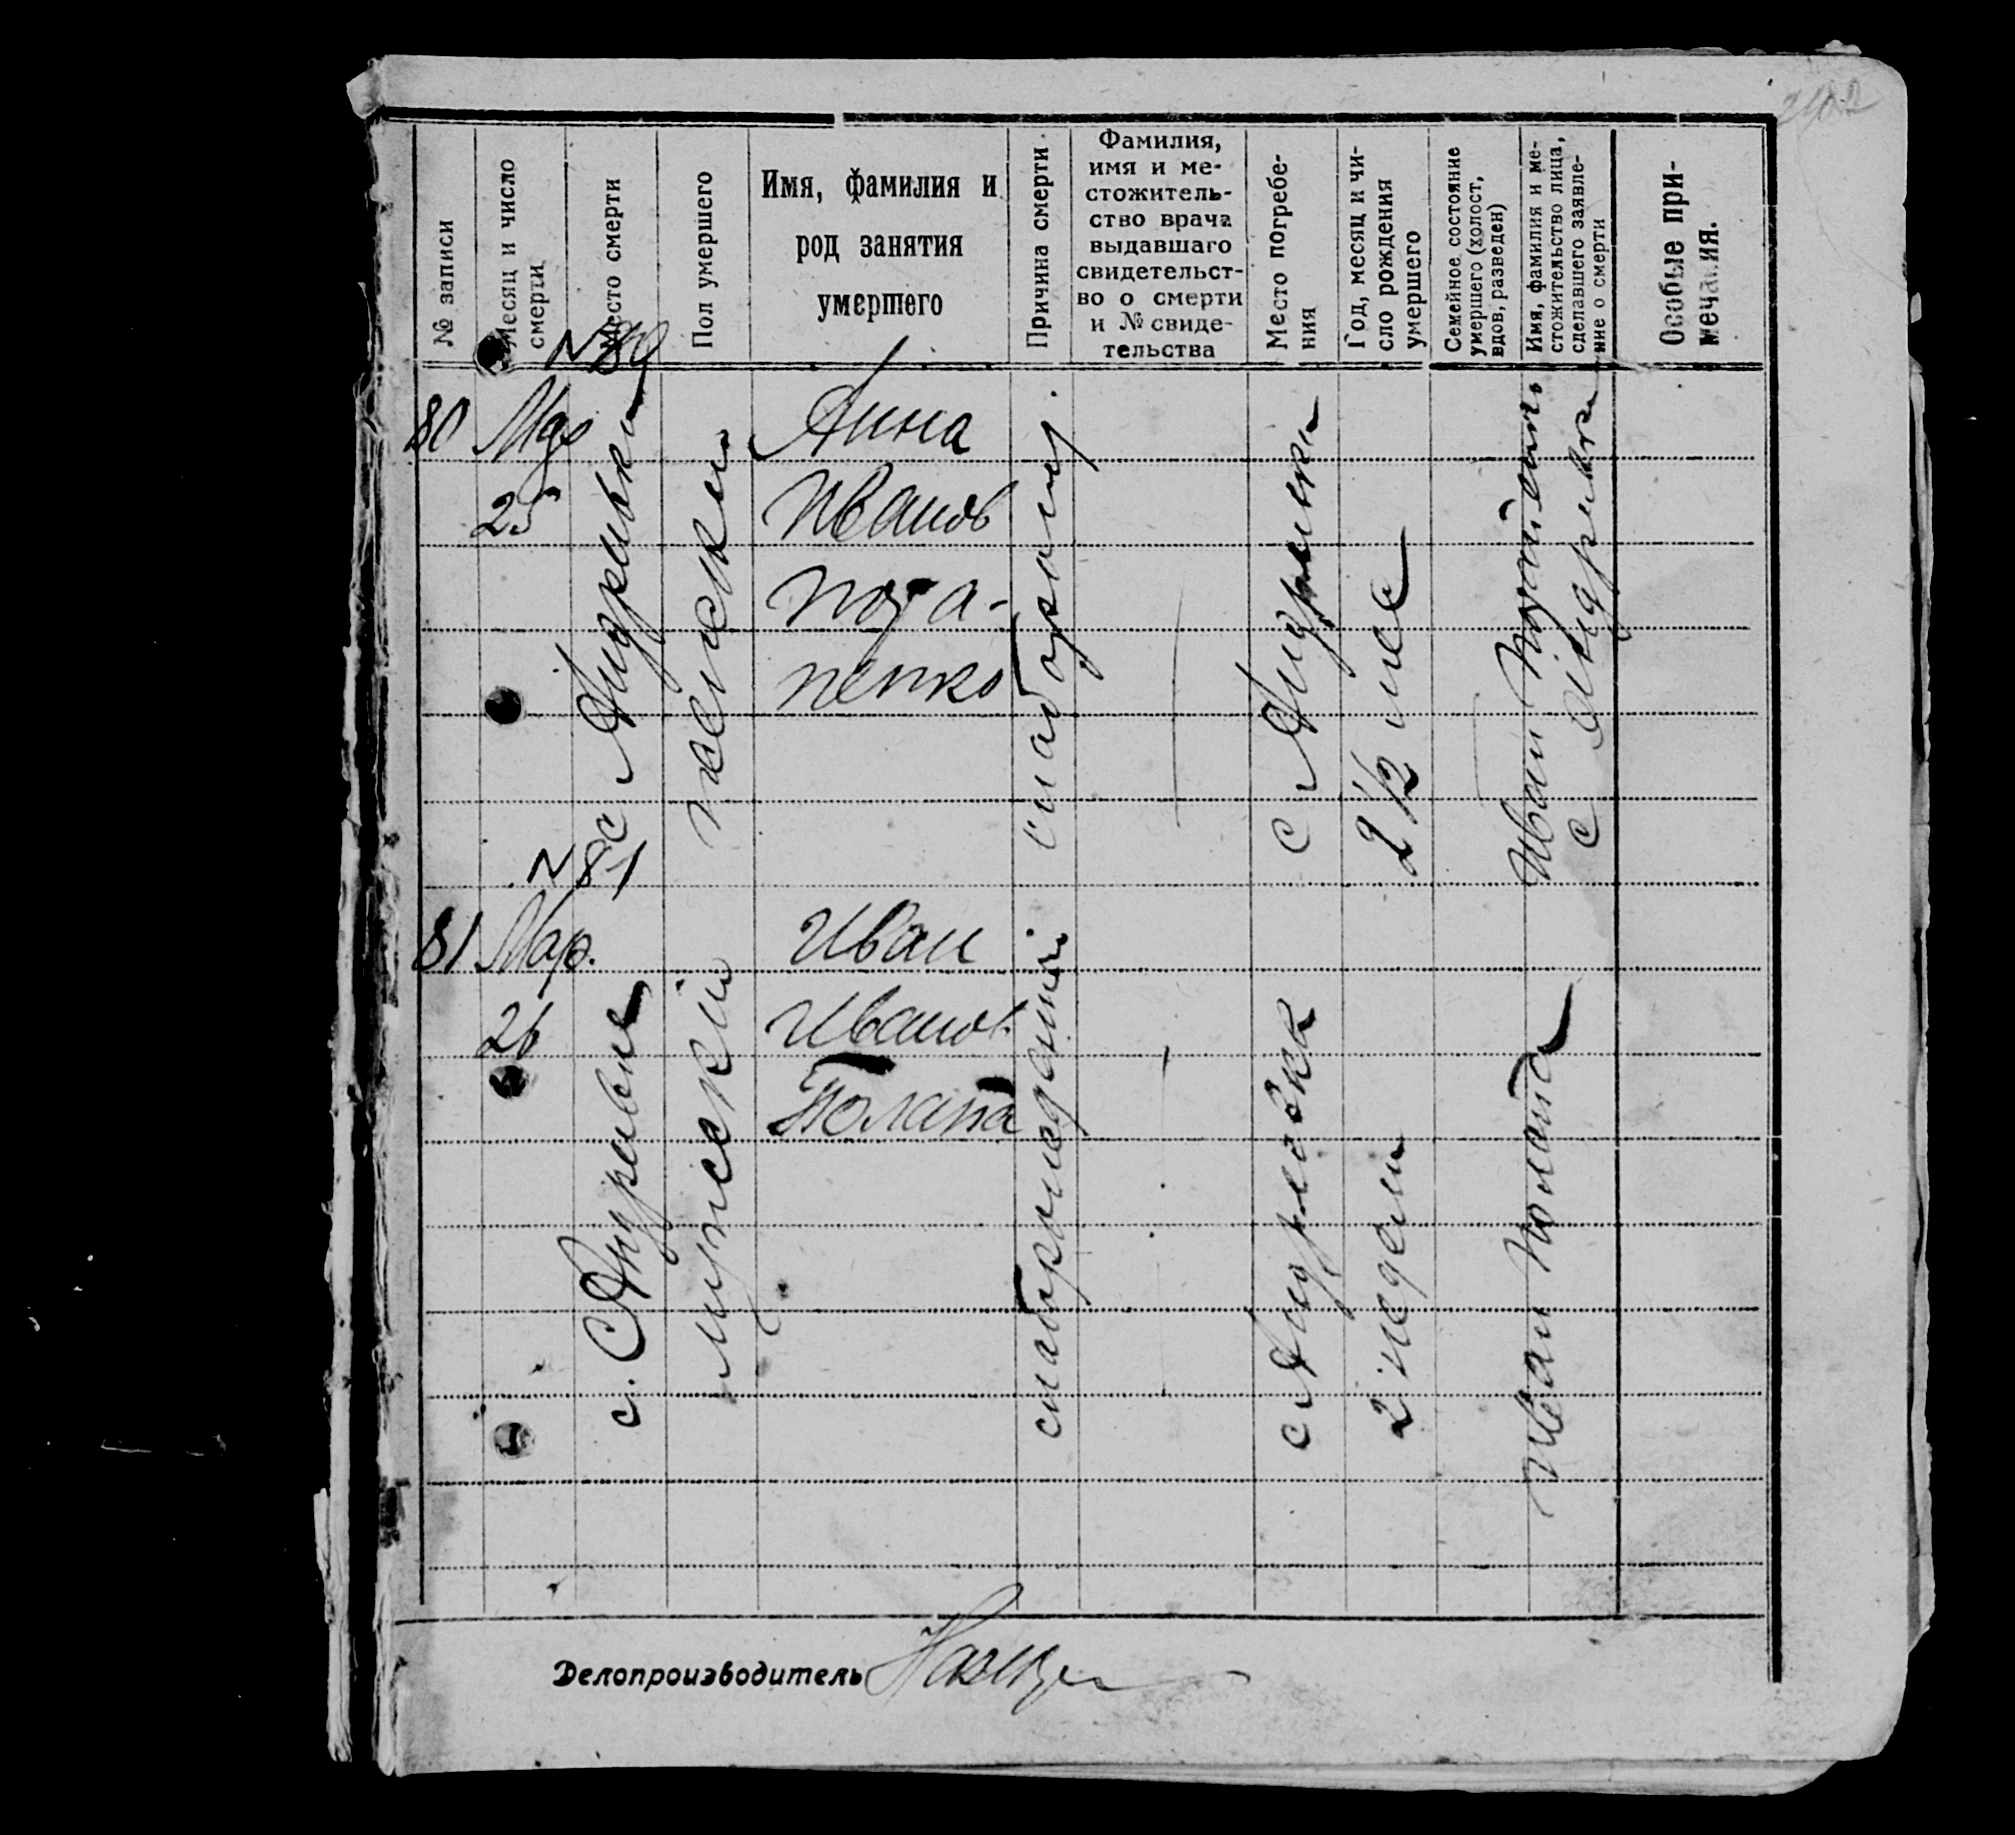 2402
№ записи
Месяц и число
смерти
Место смерти
Пол умершего
Имя, фамилия и
род занятия
умершего
Причина смерти
Фамилия,
имя и ме-
стожитель-
ство врача
выдавшаго
свидетельст-
во о смерти
и № свиде-
тельства
Место погребе-
ния
Год, месяц и чи-
сло рождения
умершего
Семейное состояние
умершего (холост,
вдов, разведен)
Имя, фамилия и ме-
стожительство лица,
сделавшего заявле-
ние о смерти
Особые при-
мечания.
N 80
80
Мар
25
с Андреевка
женский
Анна
Иванов
Пота-
пенко
с Андреевка
2 1/2 мес
Иван Потапенко
с Андреевка
N 81
81
Мар.
26
с. Андреевка
мужской
Иван
Иванов
Полата
слаборожденный
с Андреевка
2 недели
Иван Полата
Делопроизводитель